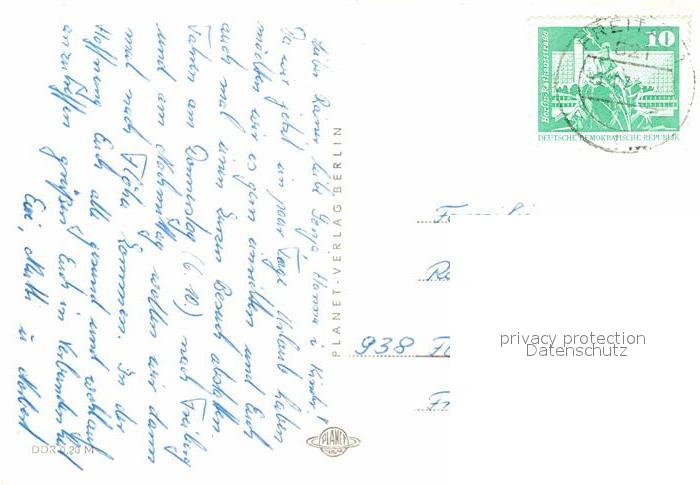 Liebe Rainer, liebe Hanna u. Kinder!
Da wir jetzt ein paar Tage Urlaub haben
möchten wir es gern ausnützen und Euch
auch mal einen kurzen Besuch abstatten.
Fahren am Donnerstag (6.10.) nach Freiberg
und am Nachmittag wollen wir dann
mal nach Flöha kommen. In der
Hoffnung Euch all gesund und wohlauf
anzutreffen grüßen Euch in Verbundenheit
Eure, Mutti u.
PLANET-VERLAG BERLIN
DDR 0,20 M
PLANET
10
Berlin, Rathausstraße
DEUTSCHE DEMOKRATISCHE REPUBLIK
938 Fl
Fr
privacy protection
Datenschutz